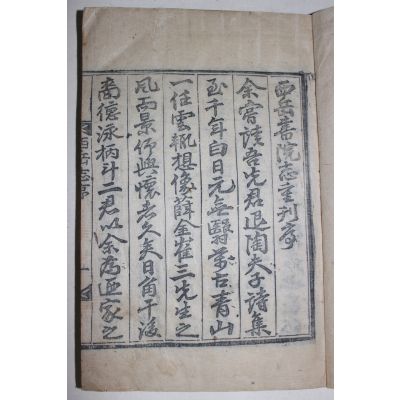 西岳書院志重刊序
余嘗讀吾先君退陶夫子詩集
至千年白日元無翳萬古青山
一任雲輒想像薛金崔三先生之
風而景仰興懷者久矣日角干後
裔德泳柄斗二君以余為家之
西岳志序 一